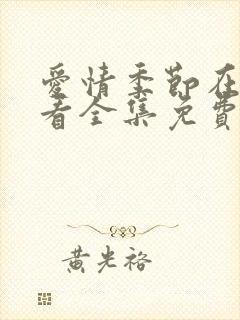 愛情季節在
看全集免費
黃光裕